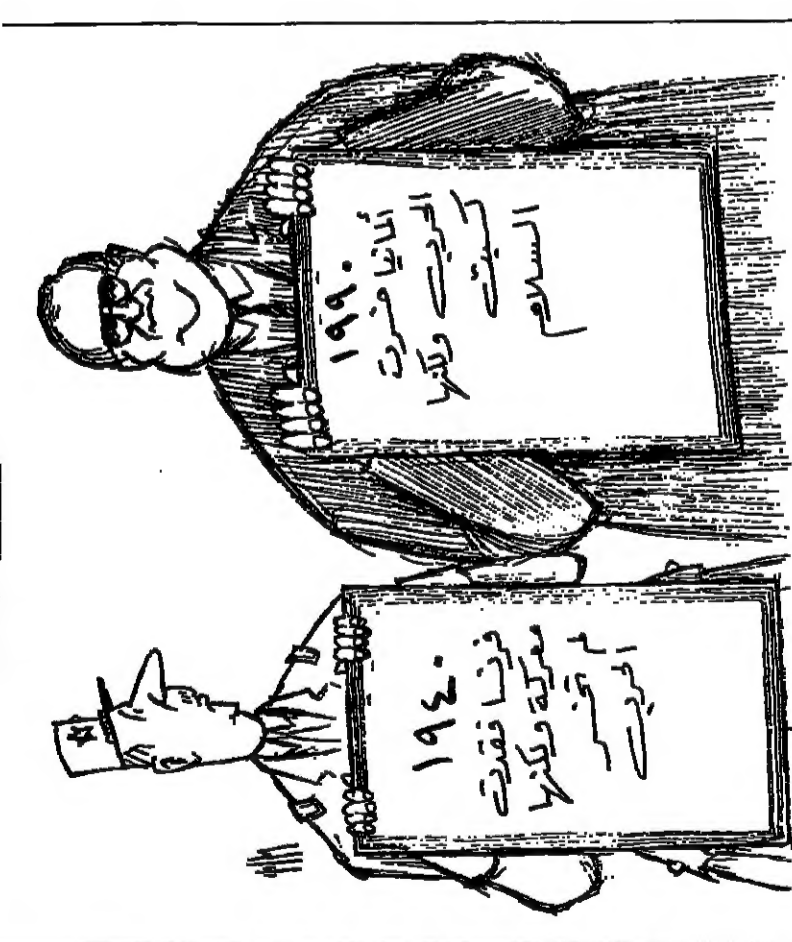 ١٩٤٠
فرنسا فقدت
معركة ولكنها
لم تخسر
الحرب
١٩٩٠
ألمانيا خسرت
الحرب ولكنها
كسبت
السلام